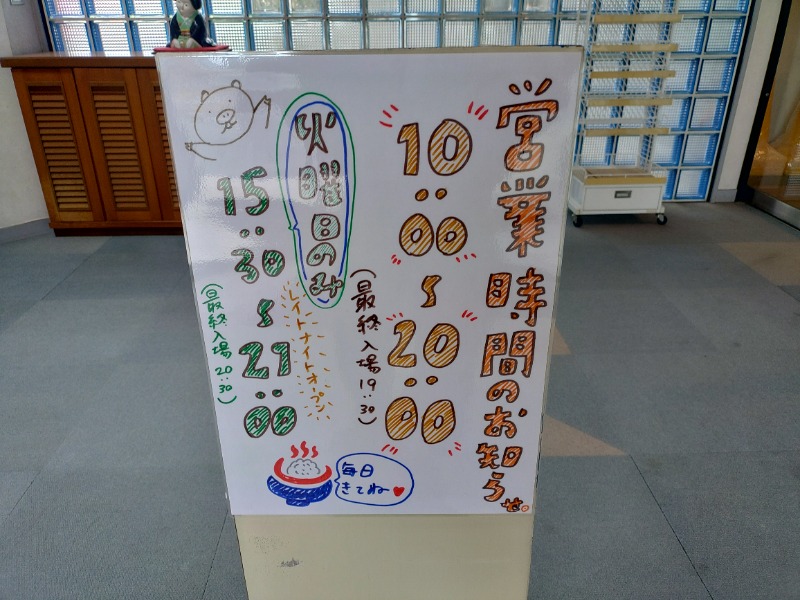 営業時間のお知らせ。
10:00~20:00
(最終入場19:30)
火曜日のみ
レイトナイトオープン
15:30~21:00
(最終入場20:30)
毎日
きてね